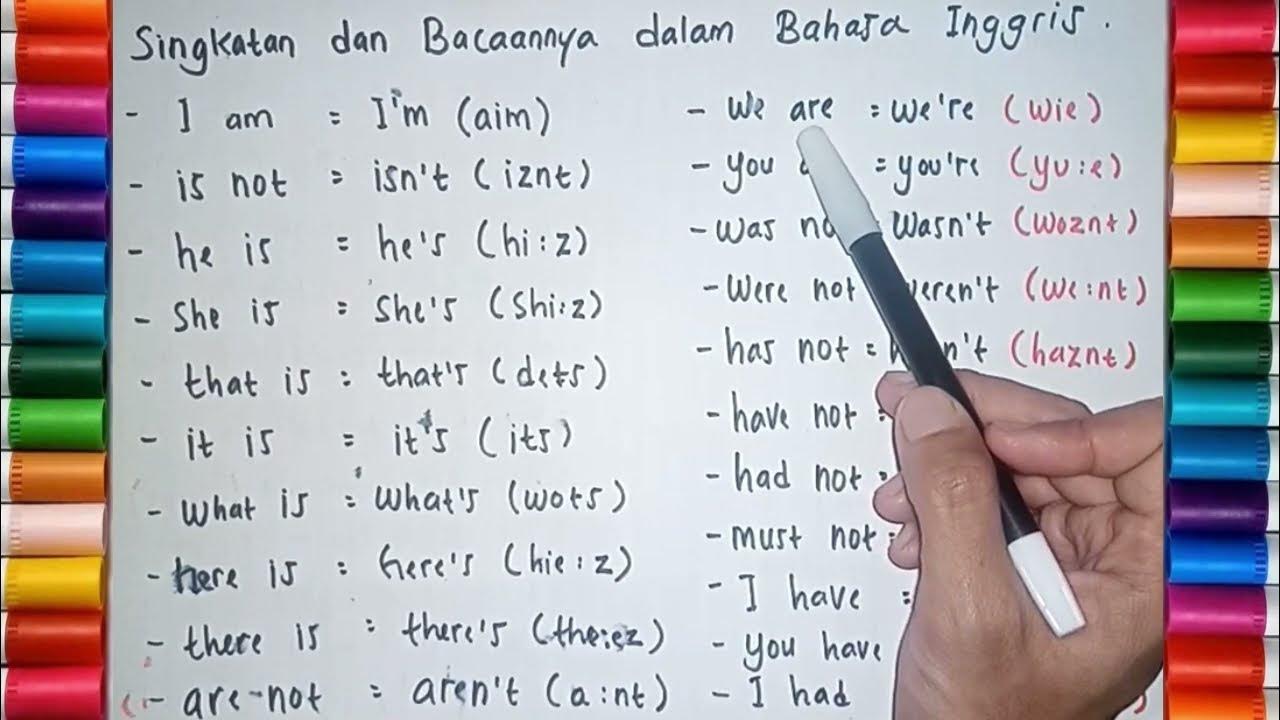 Singkatan dan Bacaannya dalam Bahasa Inggris.
- I am = I'm (aim)
- is not = isn't (iznt)
- he is = he's (hi:z)
- She is = She's (Shi:z)
- that is = that's (dets)
- it is = it's (its)
- What is = What's (wots)
- here is = here's (hie:z)
- there is = there's (the:ez)
- are-not = aren't (a:nt)
- We are = we're (wie)
- you = you're (yu:e)
- Was Wasn't (woznt)
- Were not (we:nt)
- has not = (haznt)
- have not =
- had not =
- must not =
- I have =
- you have
- I had